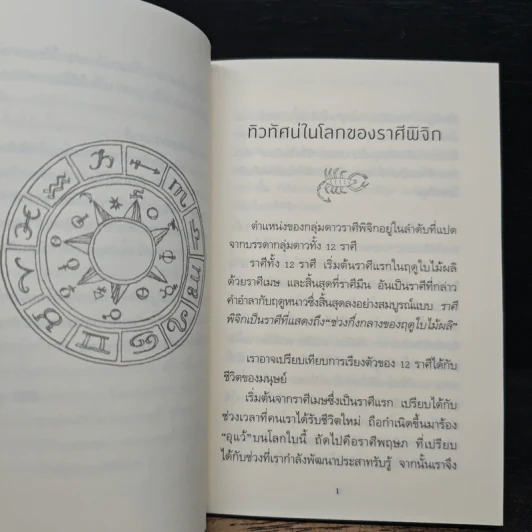 ทิวทัศน์ในโลกของราศีพิจิก
ตำแหน่งของกลุ่มดาวราศีพิจิกอยู่ในลำดับที่แปด
จากบรรดากลุ่มดาวทั้ง 12 ราศี
ราศีทั้ง 12 ราศี เริ่มต้นราศีแรกในฤดูใบไม้ผลิ
ด้วยราศีเมษ และสิ้นสุดที่ราศีมีน อันเป็นราศีที่กล่าว
คำอำลากับฤดูหนาวซึ่งสิ้นสุดลงอย่างสมบูรณ์แบบ ราศี
พิจิกเป็นราศีที่แสดงถึง“ช่วงกึ่งกลางของฤดูใบไม้ผลิ”
เราอาจเปรียบเทียบการเรียงตัวของ 12 ราศีได้กับ
ชีวิตของมนุษย์
เริ่มต้นจากราศีเมษซึ่งเป็นราศีแรก เปรียบได้กับ
ช่วงเวลาที่คนเราได้รับชีวิตใหม่ ถือกำเนิดขึ้นมาร้อง
“อุแว้”บนโลกใบนี้ ถัดไปคือราศีพฤษภ ที่เปรียบ
ได้กับช่วงที่เรากำลังพัฒนาประสาทรับรู้ จากนั้นเราจึง
1